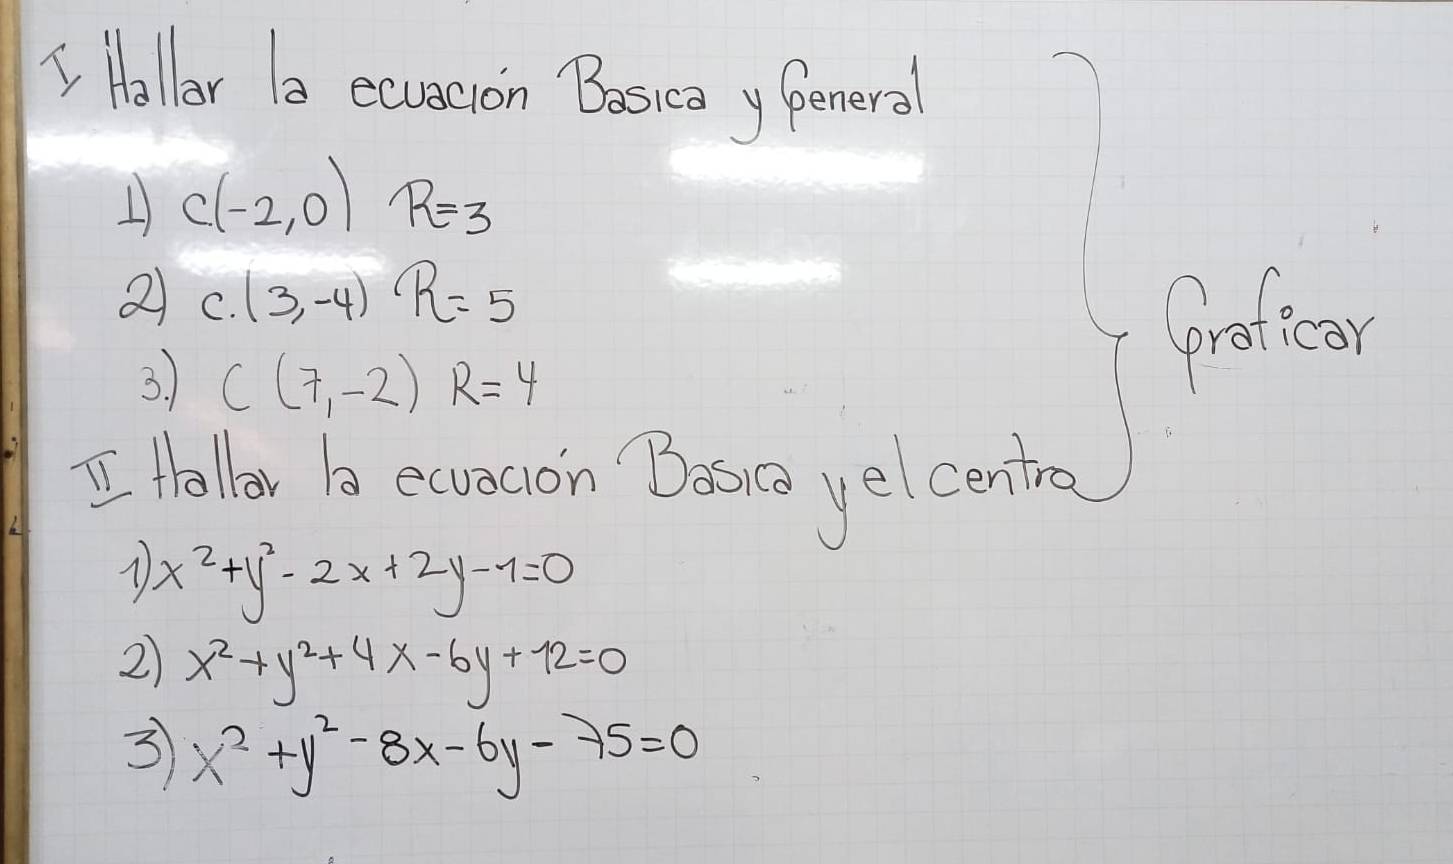 I Hallar la ecuación Basica y General
1) C.(-2,0) R=3
2) C.(3,-4) R=5
3.) C (7,-2) R=4
Graficar
II Hallar la ecuación Basica y el centro
1) x²+y²-2x+2y-1=0
2) x²+y²+4x-6y+12=0
3) x²+y²-8x-6y-75=0